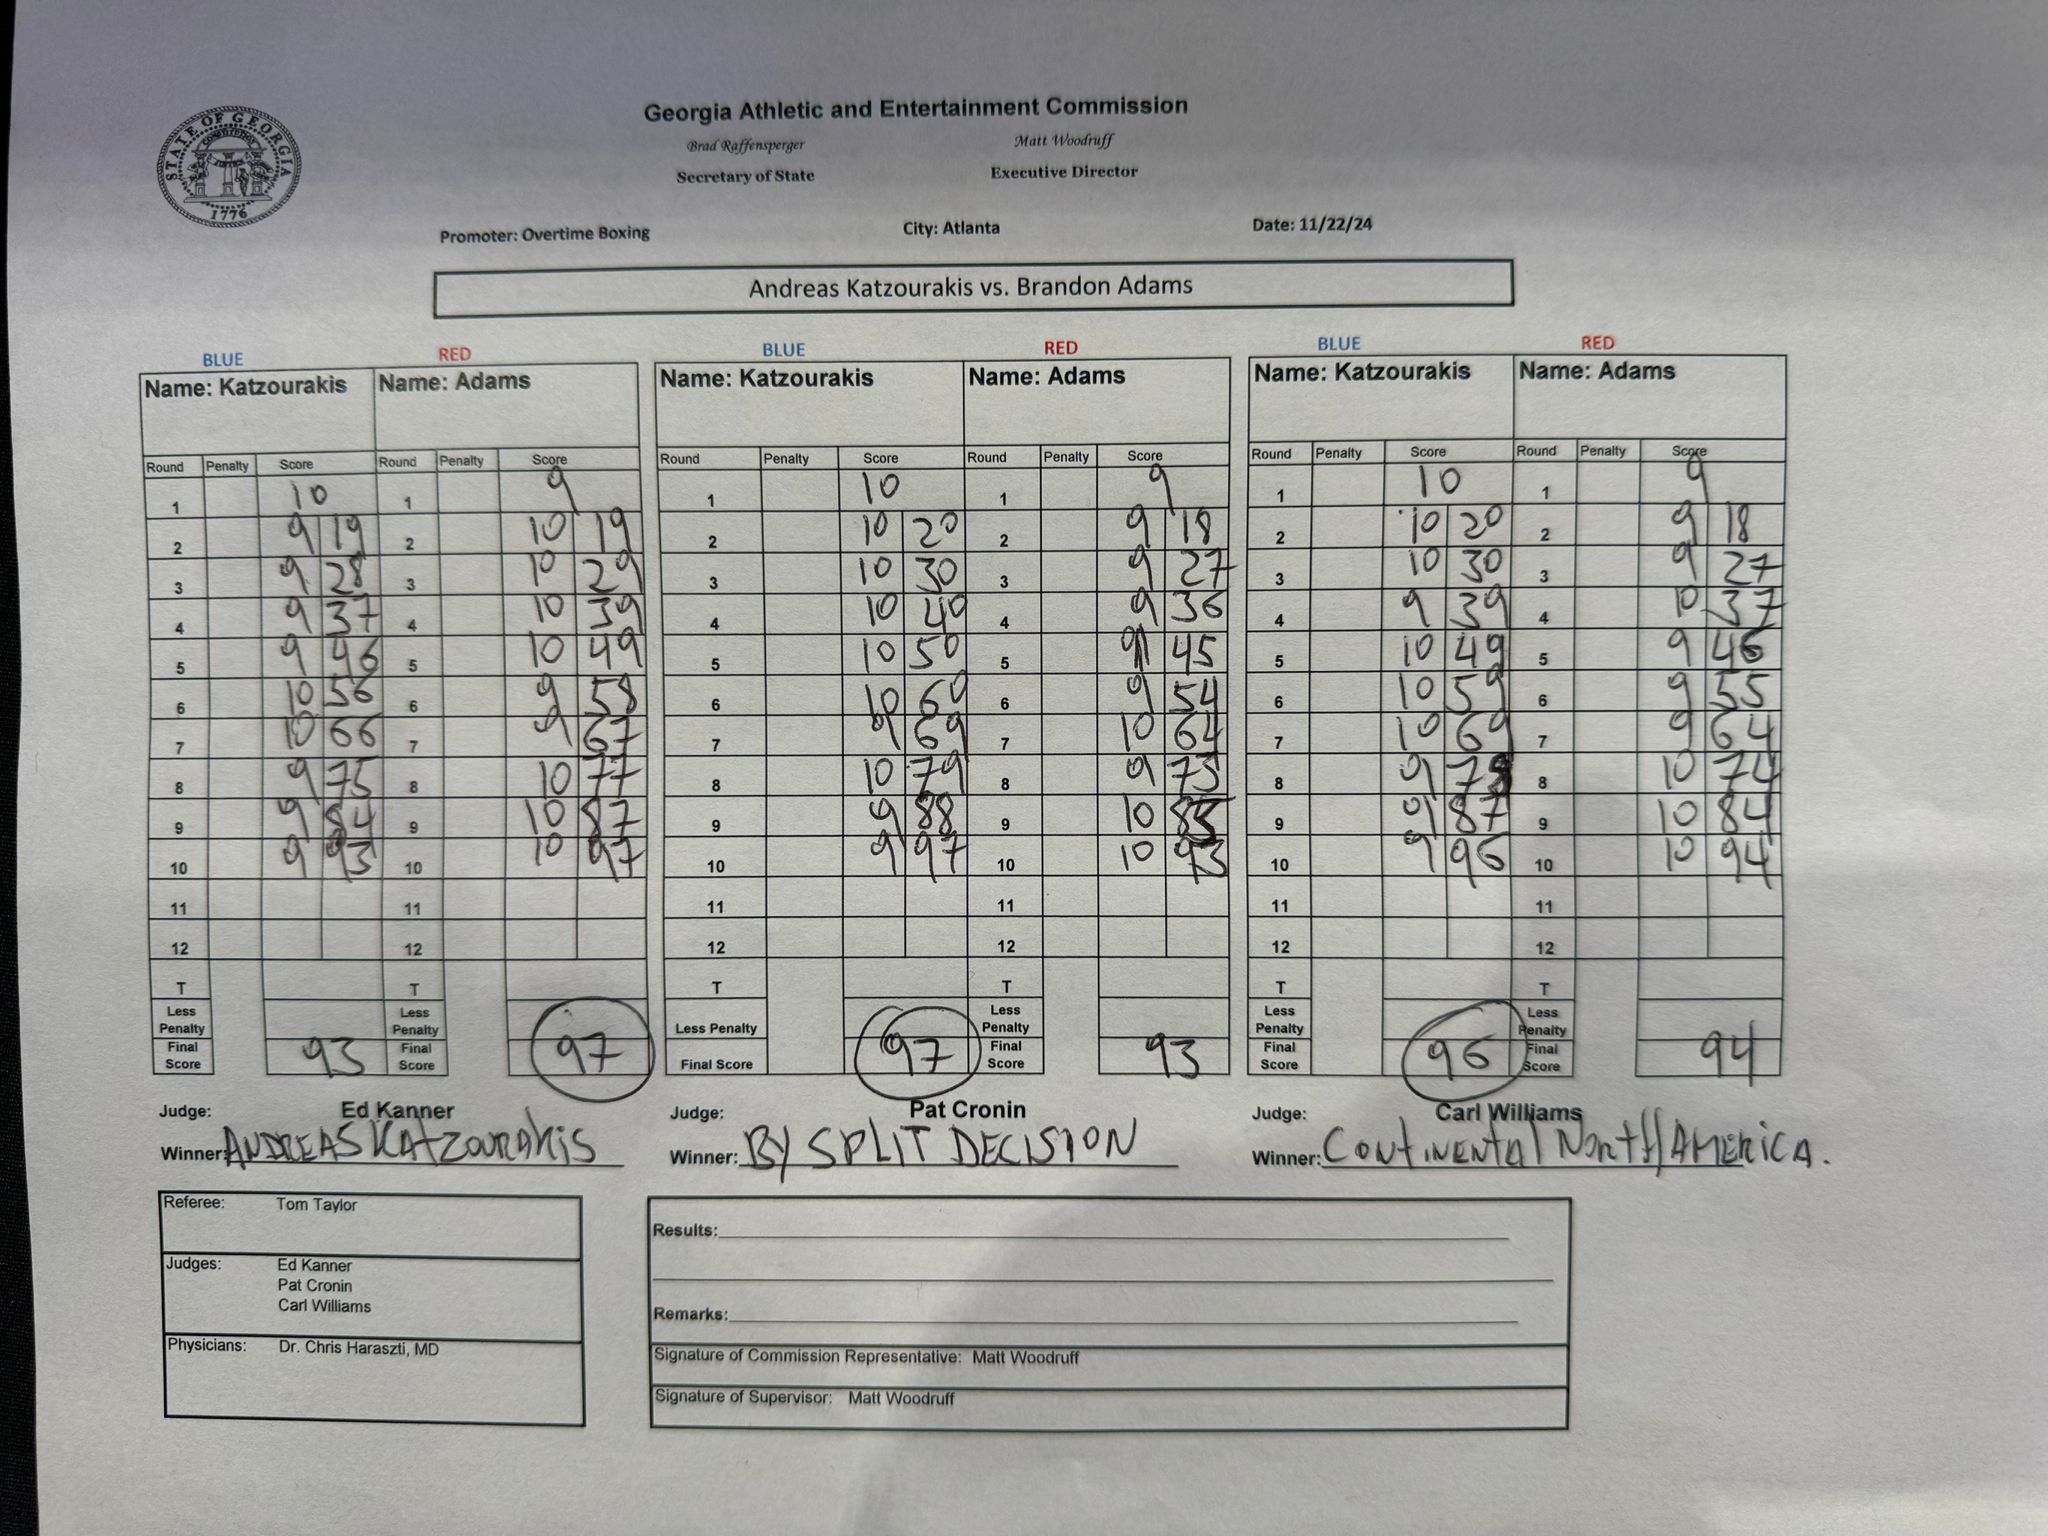 STATE OF GEORGIA
CONSTITUTION
1776
Georgia Athletic and Entertainment Commission
Brad Raffensperger Matt Woodruff
Secretary of State Executive Director
Promoter: Overtime Boxing City: Atlanta Date: 11/22/24
Andreas Katzourakis vs. Brandon Adams
BLUE RED BLUE RED BLUE RED
Name: Katzourakis Name: Adams Name: Katzourakis Name: Adams Name: Katzourakis Name: Adams
Round Penalty Score Round Penalty Score Round Penalty Score Round Penalty Score Round Penalty Score Round Penalty Score
1 10 1 9 1 10 1 9 1 10 1 9
2 9 19 2 10 19 2 10 20 2 9 18 2 10 20 2 9 18
3 9 28 3 10 29 3 10 30 3 9 27 3 10 30 3 9 27
4 9 37 4 10 39 4 10 40 4 9 36 4 9 39 4 10 37
5 9 46 5 10 49 5 10 50 5 9 45 5 10 49 5 9 46
6 10 56 6 9 58 6 10 60 6 9 54 6 10 59 6 9 55
7 10 66 7 9 67 7 9 69 7 10 64 7 10 69 7 9 64
8 9 75 8 10 77 8 10 79 8 9 73 8 9 78 8 10 74
9 9 84 9 10 87 9 9 88 9 10 83 9 9 87 9 10 84
10 9 93 10 10 97 10 9 97 10 10 93 10 9 96 10 10 94
11 11 11 11 11 11
12 12 12 12 12 12
T T T T T T
Less Penalty Less Penalty Less Penalty Less Penalty Less Penalty Less Penalty
Final Score 93 Final Score 97 Final Score 97 Final Score 93 Final Score 96 Final Score 94
Judge: Ed Kanner Judge: Pat Cronin Judge: Carl Williams
Winner: ANDREAS KATZOURAKIS Winner: BY SPLIT DECISION Winner: CONTINENTAL NORTH AMERICA.
Referee: Tom Taylor
Judges: Ed Kanner
Pat Cronin
Carl Williams
Physicians: Dr. Chris Haraszti, MD
Results:
Remarks:
Signature of Commission Representative: Matt Woodruff
Signature of Supervisor: Matt Woodruff